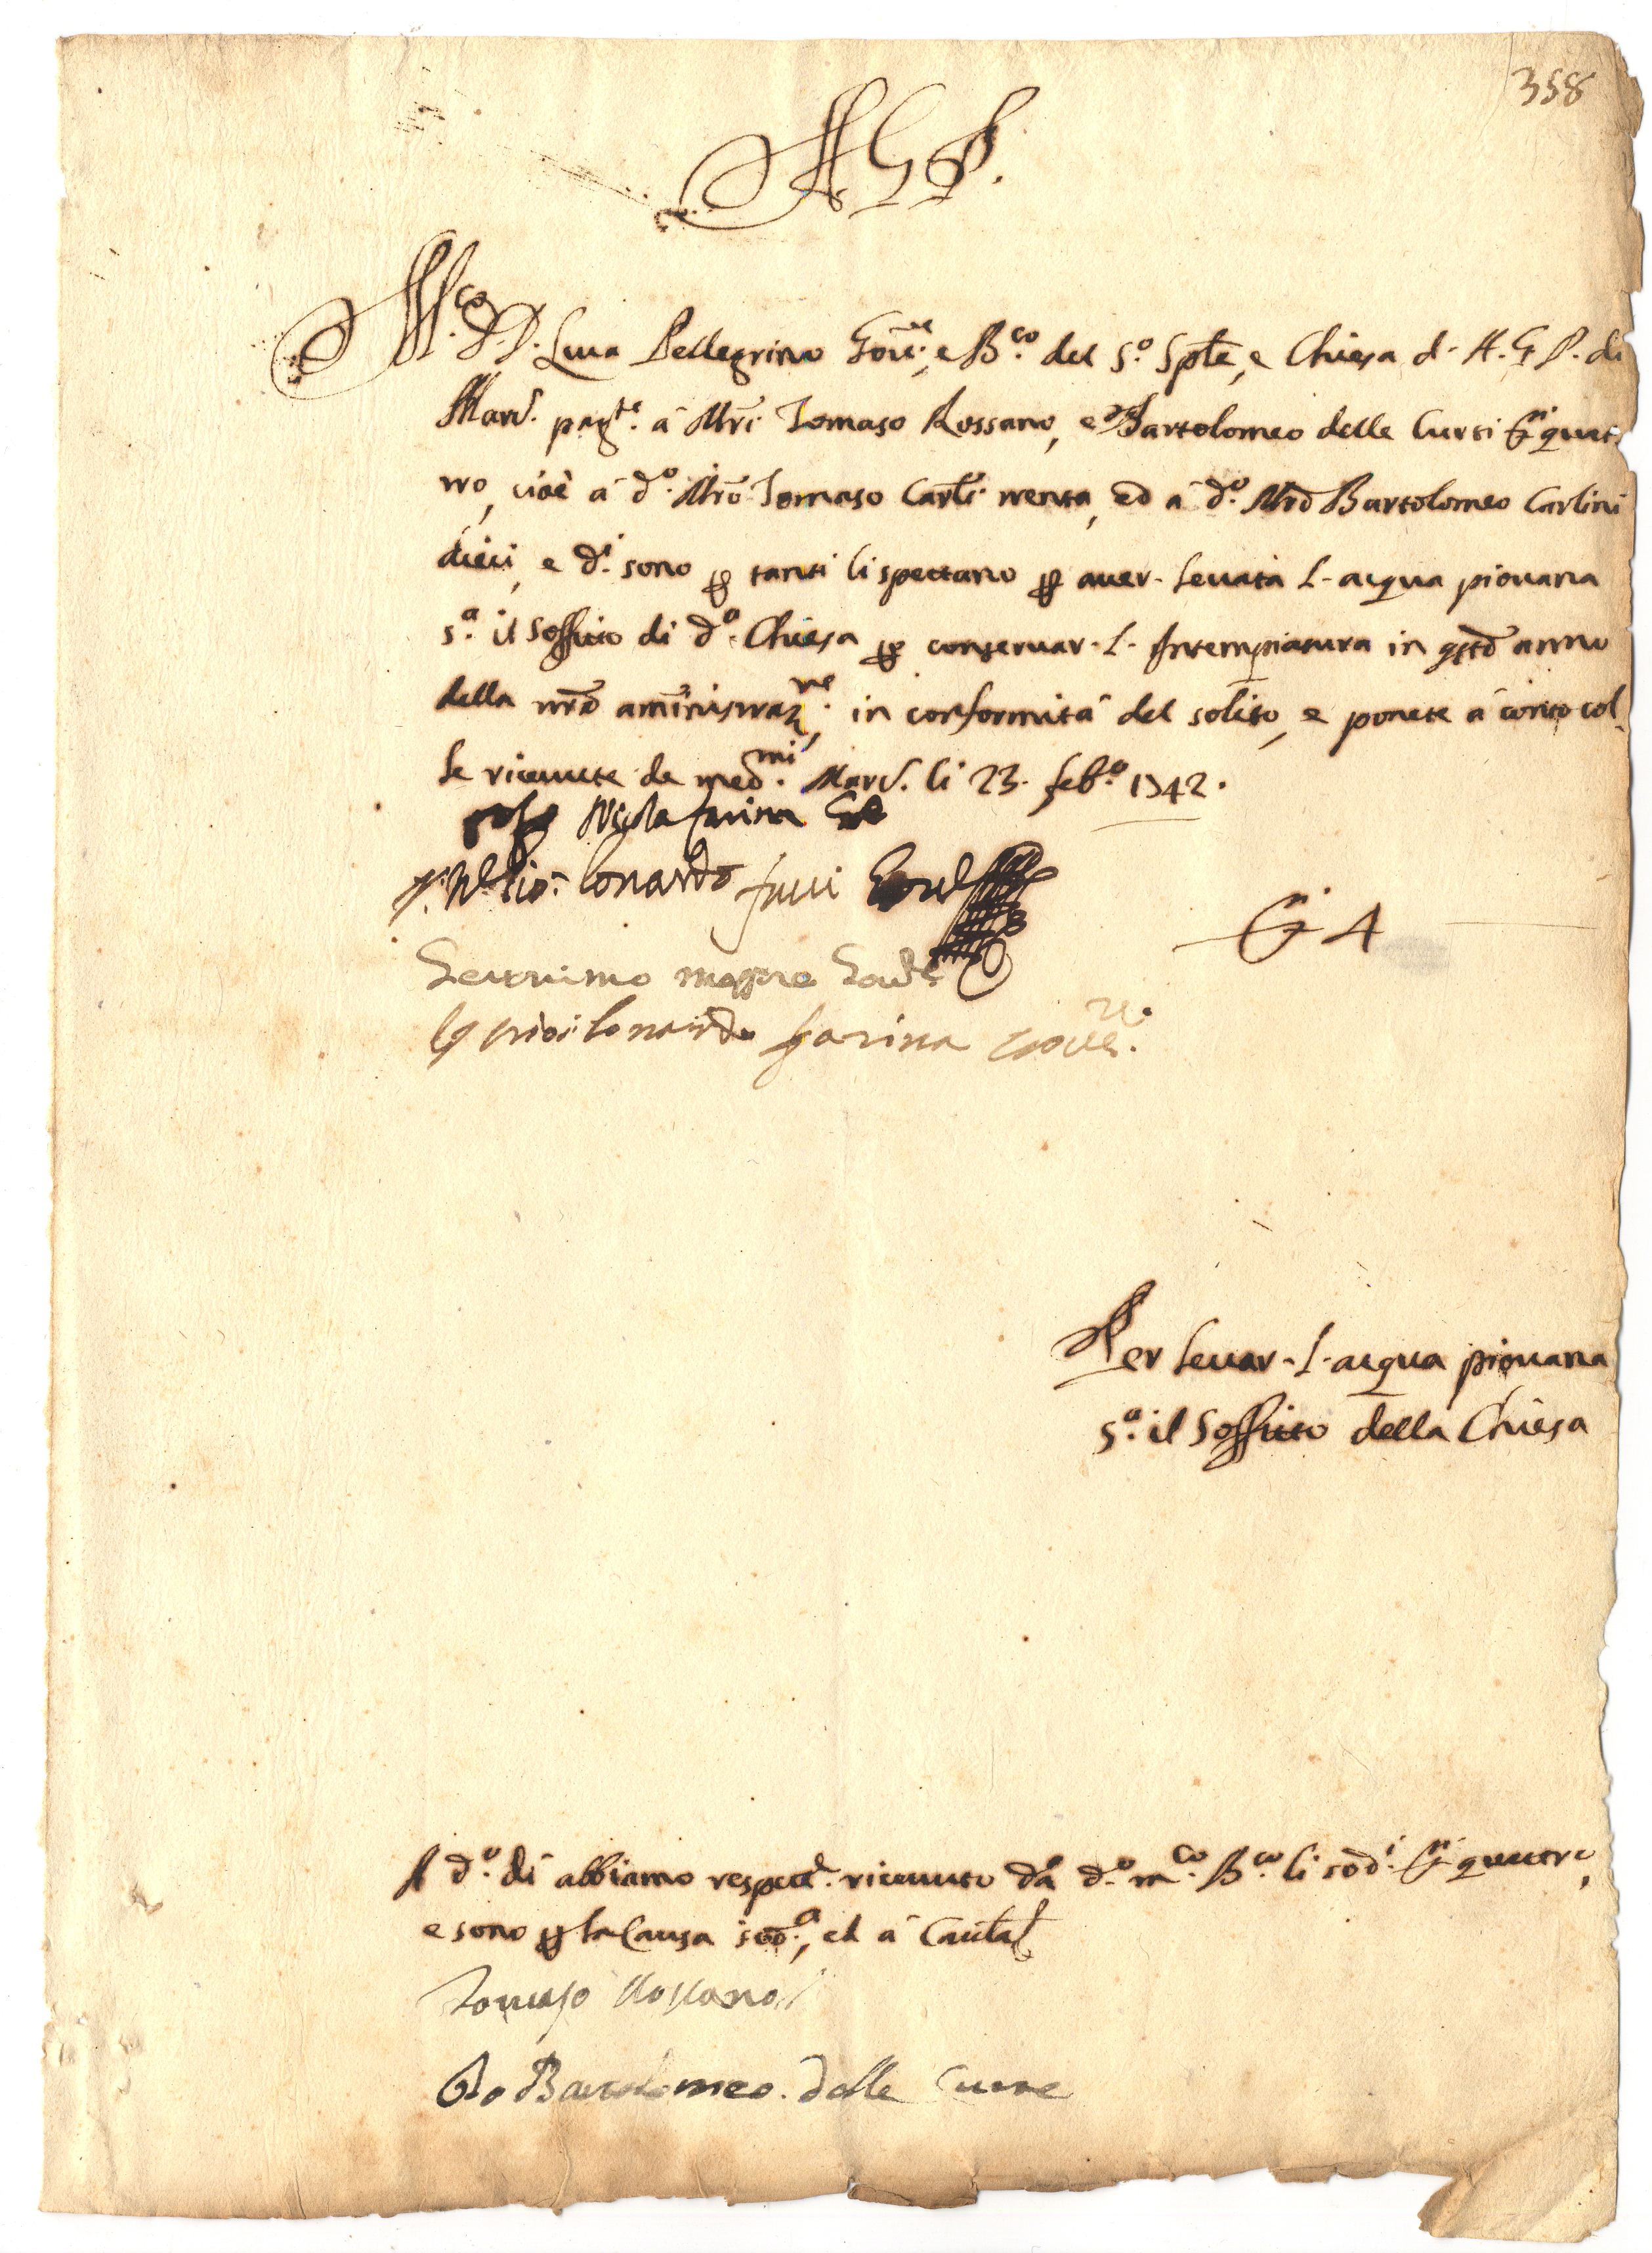 358
A G P.
M.co D.D. Luca Pellegrino Gov.re, e B.co del S.o Sple, e Chiesa d. A. G. P. di
Mard. pag.te à Mri Tomaso Rossano, e Bartolomeo delle Curti d.ti quat
tro, cioè à d.o Mro Tomaso Carli. trenta, ed à d.o Mro Bartolomeo Carlini
dieci, e d.i sono p tanti li spettano p aver- levata l- acqua piovana
s.a il soffitto di d.a Chiesa p conservar- l- Intempiatura in qsto anno
della nra aminisraz.ne in conformità del solito, e ponete à conto col
le ricevute de med.mi Mard. li 23. feb.o 1742.
Nicola farina
lonardo
Geronimo
lonardo farina Gover.re
4
Per levar- l- acqua piovana
s.a il soffitto della Chiesa
A d.o dì abbiamo respect.e ricevuto da d.o m.co B.co li sod.i quattro,
e sono p la Causa sod.a, ed à Cautel.
Tomaso Rossano
Io Bartolomeo delle Curte